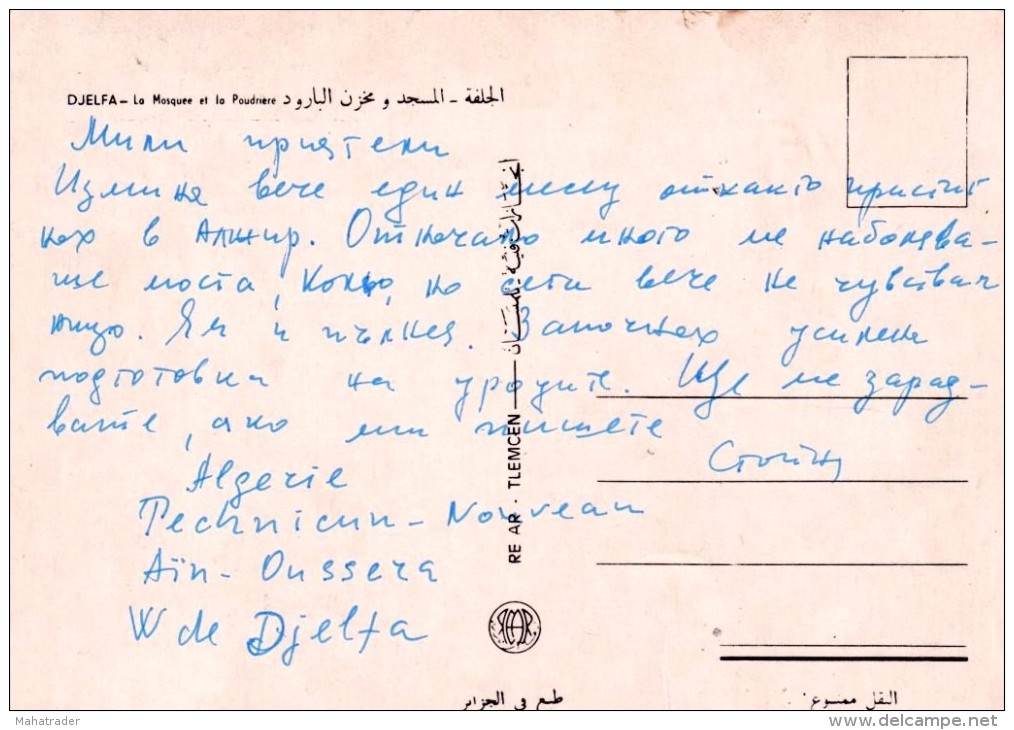 DJELFA – La Mosquee et la Poudrière الجلفة - المسجد و مخزن البارود
Мили приятели
Измина вече един месец откакто пристиг
нах в Алжир. Отначало много ме наболява-
ше носта, но сега вече не чувствам
нищо. Ям и пълнея. Започнах усилена
подготовка на уроците. Ще ме зарад-
вате, ако ми пишете
Стойчо
Algerie
Technicum - Nouveau
Aïn - Oussera
W de Djelfa
RE AR · TLEMCEN
طبع في الجزائر
النقل ممنوع
Mahatrader
www.delcampe.net